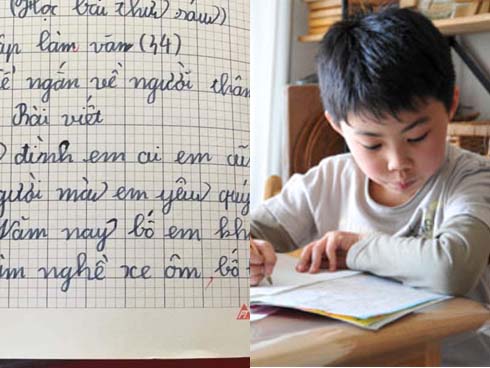 (Học bài thứ sáu)
ập làm văn (44)
ể ngắn về người thân
Bài viết
đình em ai em cũ
gười mà em yêu quý
Năm nay bố em kh
àm nghề xe ôm, bố